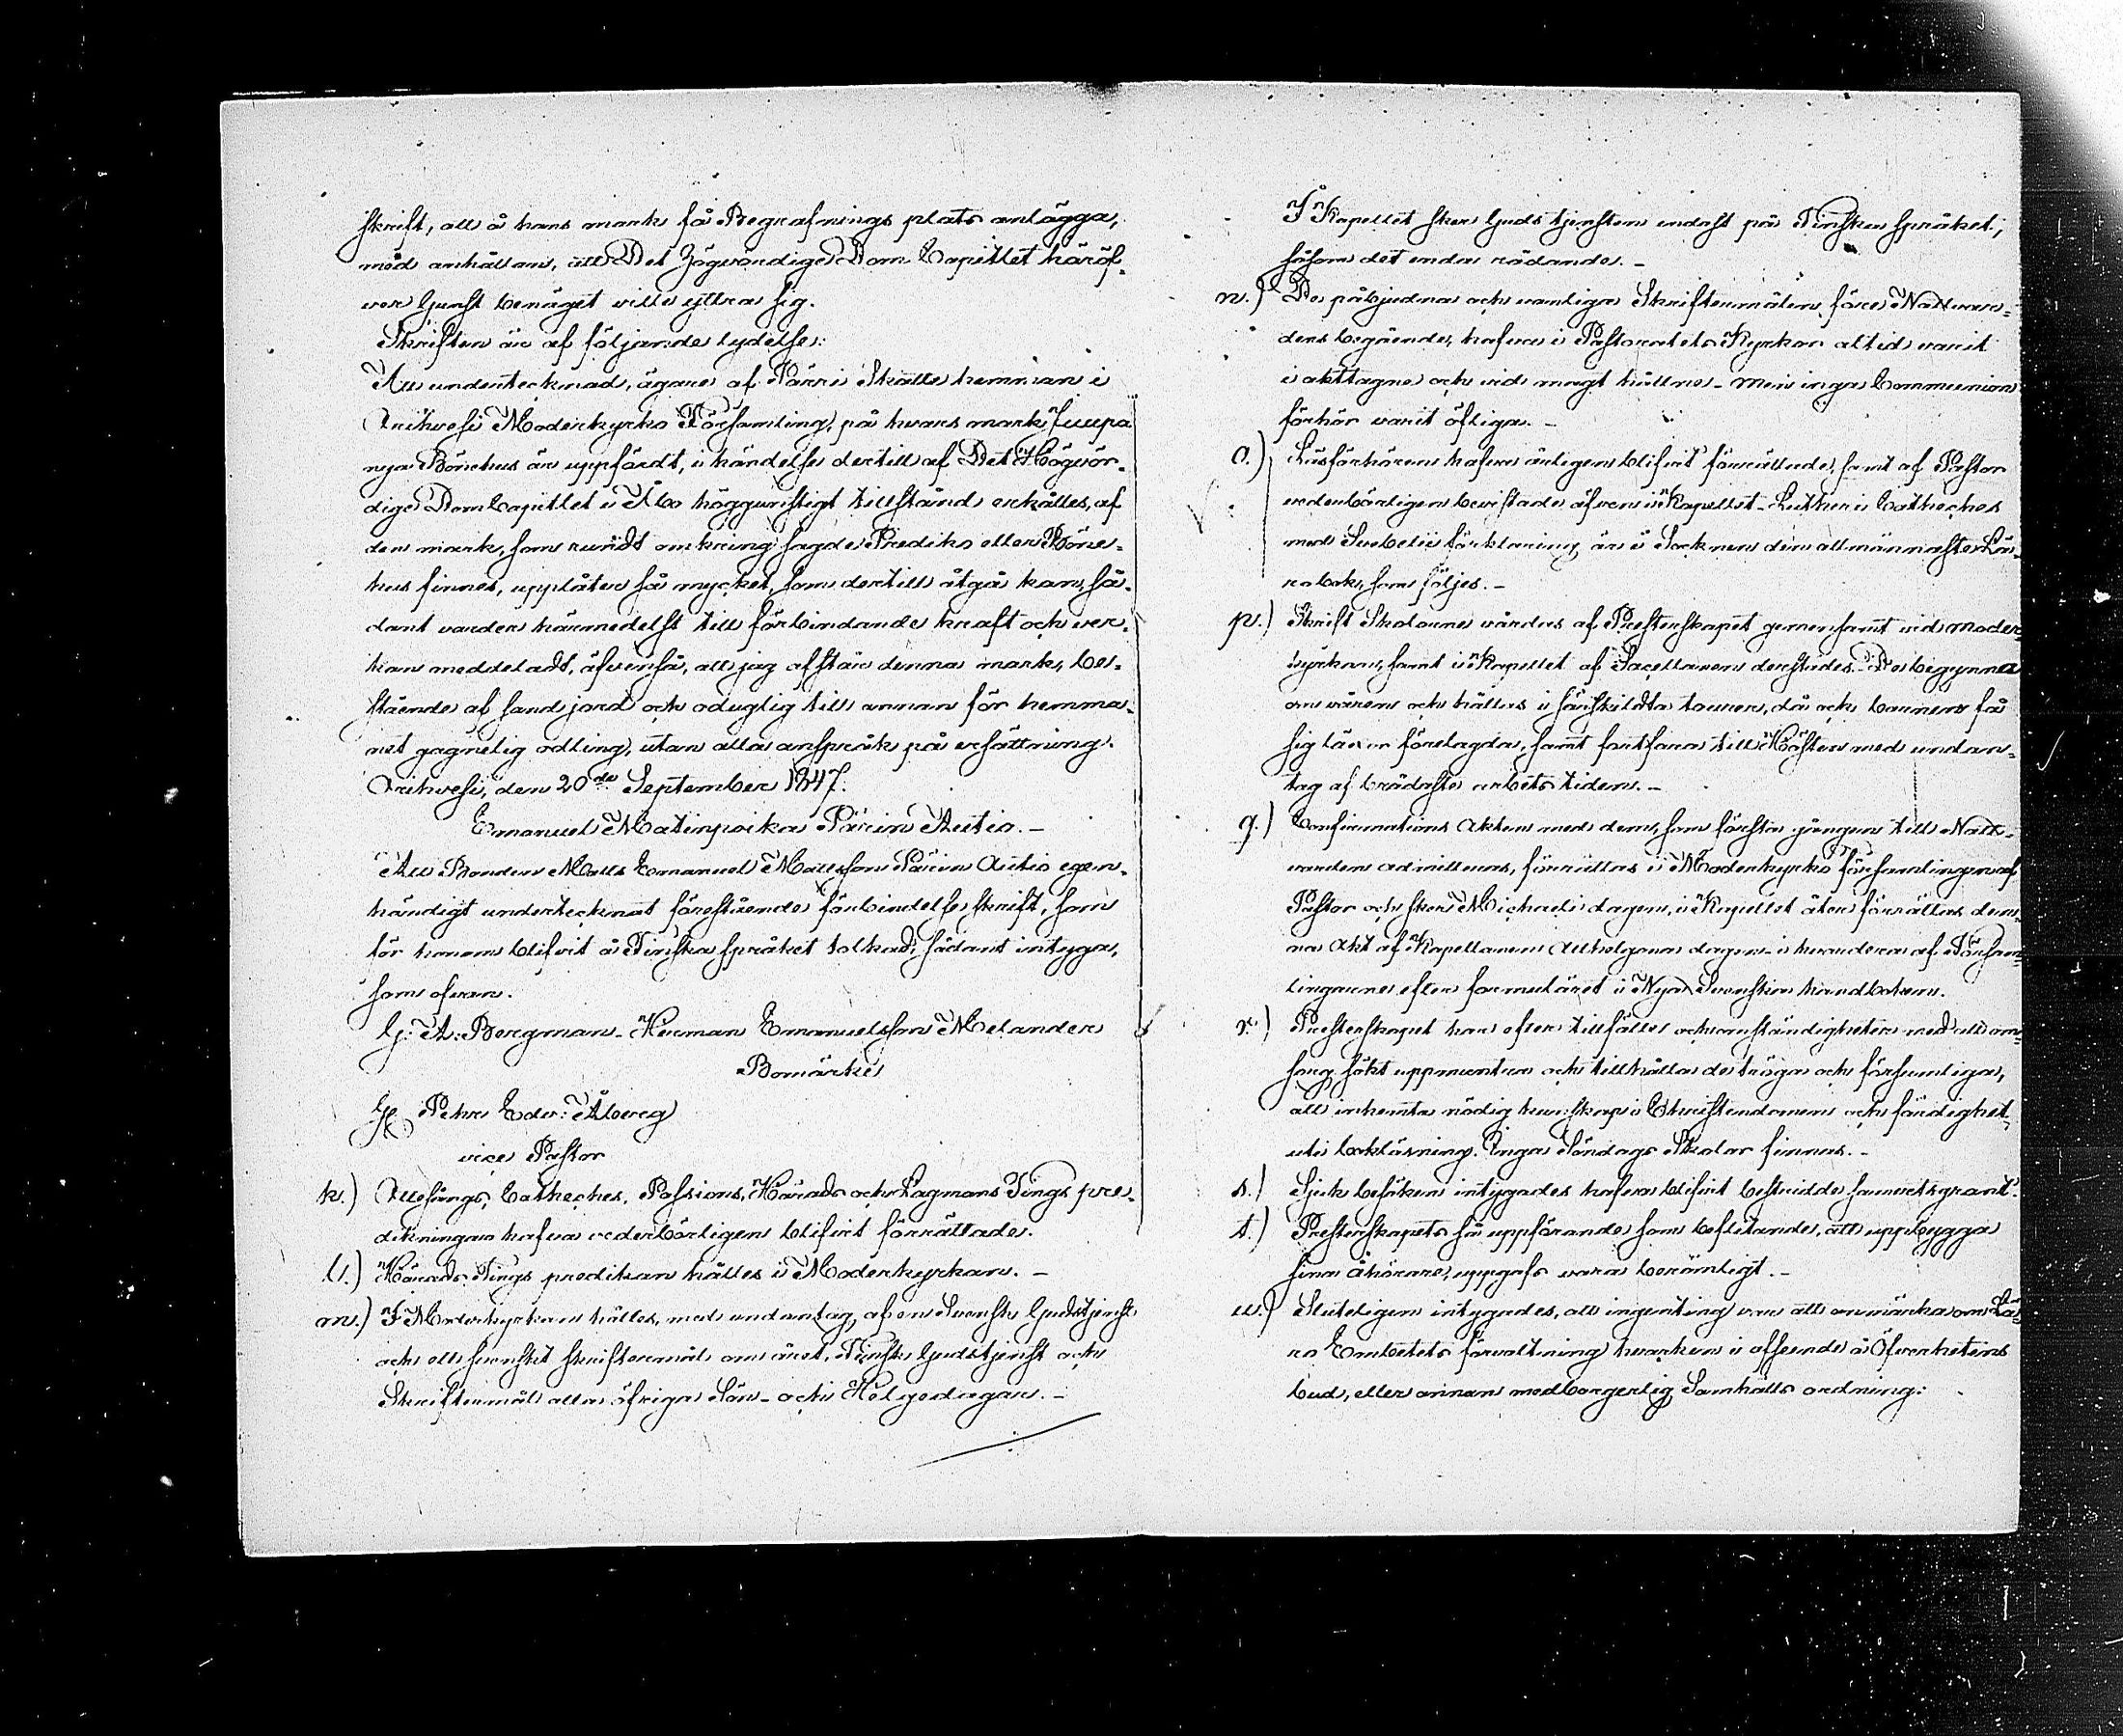 skrift, att å hans mark få Begrafnings plats anlägga,
med anhållan, att Det Högvördige Dom Capitlet häröf-
ver gunst benäget ville yttra sig.
Skriften är af följande lydelse:
Att undertecknad, ägare af Pärri Skatte hemman i
Orihvesi Moderkyrko Församling, på hvars mark Juupa
nya Bönehus är uppfördt, i händelse dertill af Det Högvör-
dige DomCapitlet i Åbo höggunstigt tillstånd erhålles, af
den mark, som rundt omkring sagde Prediko eller Böne-
hus finnes, upplåter så mycket, som dertill åtgå kan, så-
dant varder härmedelst till förbindande kraft och ver-
kan meddeladt, äfvenså, att jag afstår denna mark, be-
stående af sand jord och oduglig till annan för hemma-
net gagnelig odling, utan alla anspråk på ersättning.
Orihvesi, den 20de September 1847.
Emanuel Matinpoika Pärin Autio. -
Att Bonden Matts Emanuel Mattsson Pärin Autio egen-
händigt undertecknat förestående förbindelse skrift, som
för honom blifvit å Finska språket tolkad, sådant intyga,
som ofvan.
G: A: Bergman - Herman Emanuelsson Melander
Bomärke
Petr Edv: Åberg
vice Pastor
k.) Ottesångs, Catheches, Passions, Härads och Lagmans Tings pre-
dikningar hafva vederbörligen blifvit förrättade.
l.) Härads Tings predikan hålles i Moderkyrkan. -
m.) I Moderkyrkan hålles, med undantag, af en Svensk Gudstjenst
och ett svenskt skriftermål om året, Finsk Gudstjenst och
Skriftermål alla öfriga Sön- och Helgedagar. -
I Kapellet sker Gudstjensten endast på Finska språket,
såsom det enda rådande. -
n.) De påbjudna och vanliga Skriftermålen före Nattvar-
dens begående, hafva i Pastoratets Kyrkor altid varit
i akttagne och vid magt hållne - men inga Communion
förhör varit öfliga. -
o.) Läsförhören hafva årligen blifvit förrättade, samt af Pastor
vederbörligen bevistade äfven i Kapellet - Lutheri Catheches
med Svebelii förklaring är i Socknen den allmännaste Lä-
robok, som följes. -
p.) Skrift Skolorne vårdas af Presterskapet gemensamt vid moder
kyrkan, samt i Kapellet af Sacellanen derstädes. De begynna
om våren och hållas i särskildta tourer, då och barnen få
sig läxor förelagda, samt fortfara till Hösten med undan-
tag af brådaste arbets tiden. -
q.) Confirmations Akten med dem, som första gången till Natt-
varden admitteras, förrättas i Moderkyrko församlingen af
Pastor och sker Michaeli dagen, i Kapellet åter förrättas den-
na Akt af Kapellanen Allhelgona dagen - i hvardera af Försam-
lingarne efter formuläret i Nya Svenska handboken.
r.) Presterskapet har efter tillfälle och omständigheter med all om-
sorg sökt uppmuntra och tillhålla de tröga och försumliga,
att inhemta nödig kunskap i Christendomen och färdighet
uti bokläsning. Inga Söndags Skolor finnas. -
s.) Sjuk besöken intygades hafva blifvit bestridde samvetsgrant.
t.) Presterskapets så uppförande som beflitande, att uppbygga
sina åhörare, uppgafs vara berömligt. -
u.) Sluteligen intygades, att ingenting var att anmärka om Lä-
ro Embetets förvaltning hvarken i afseende å Öfverhetens
bud, eller annan medborgerlig Samhälls ordning: